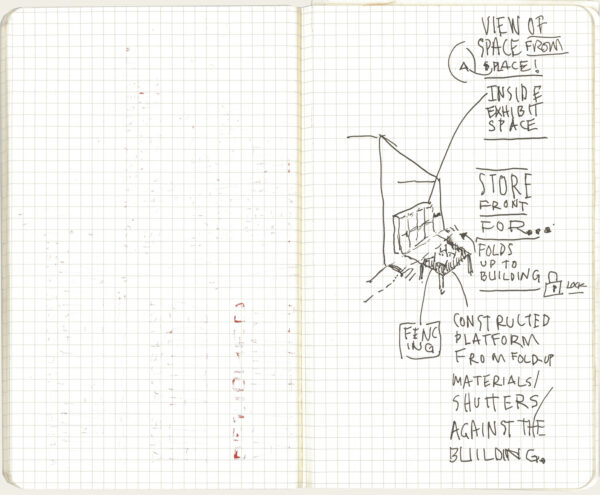 VIEW OF
SPACE FROM
A SPLACE!
INSIDE
EXHIBIT
SPACE
STORE
FRONT
FOR...
FOLDS
UP TO
BUILDING
LOCK
FENC
ING
CONSTRUCTED
PLATFORM
FROM FOLD-UP
MATERIALS/
SHUTTERS
AGAINST THE
BUILDING.